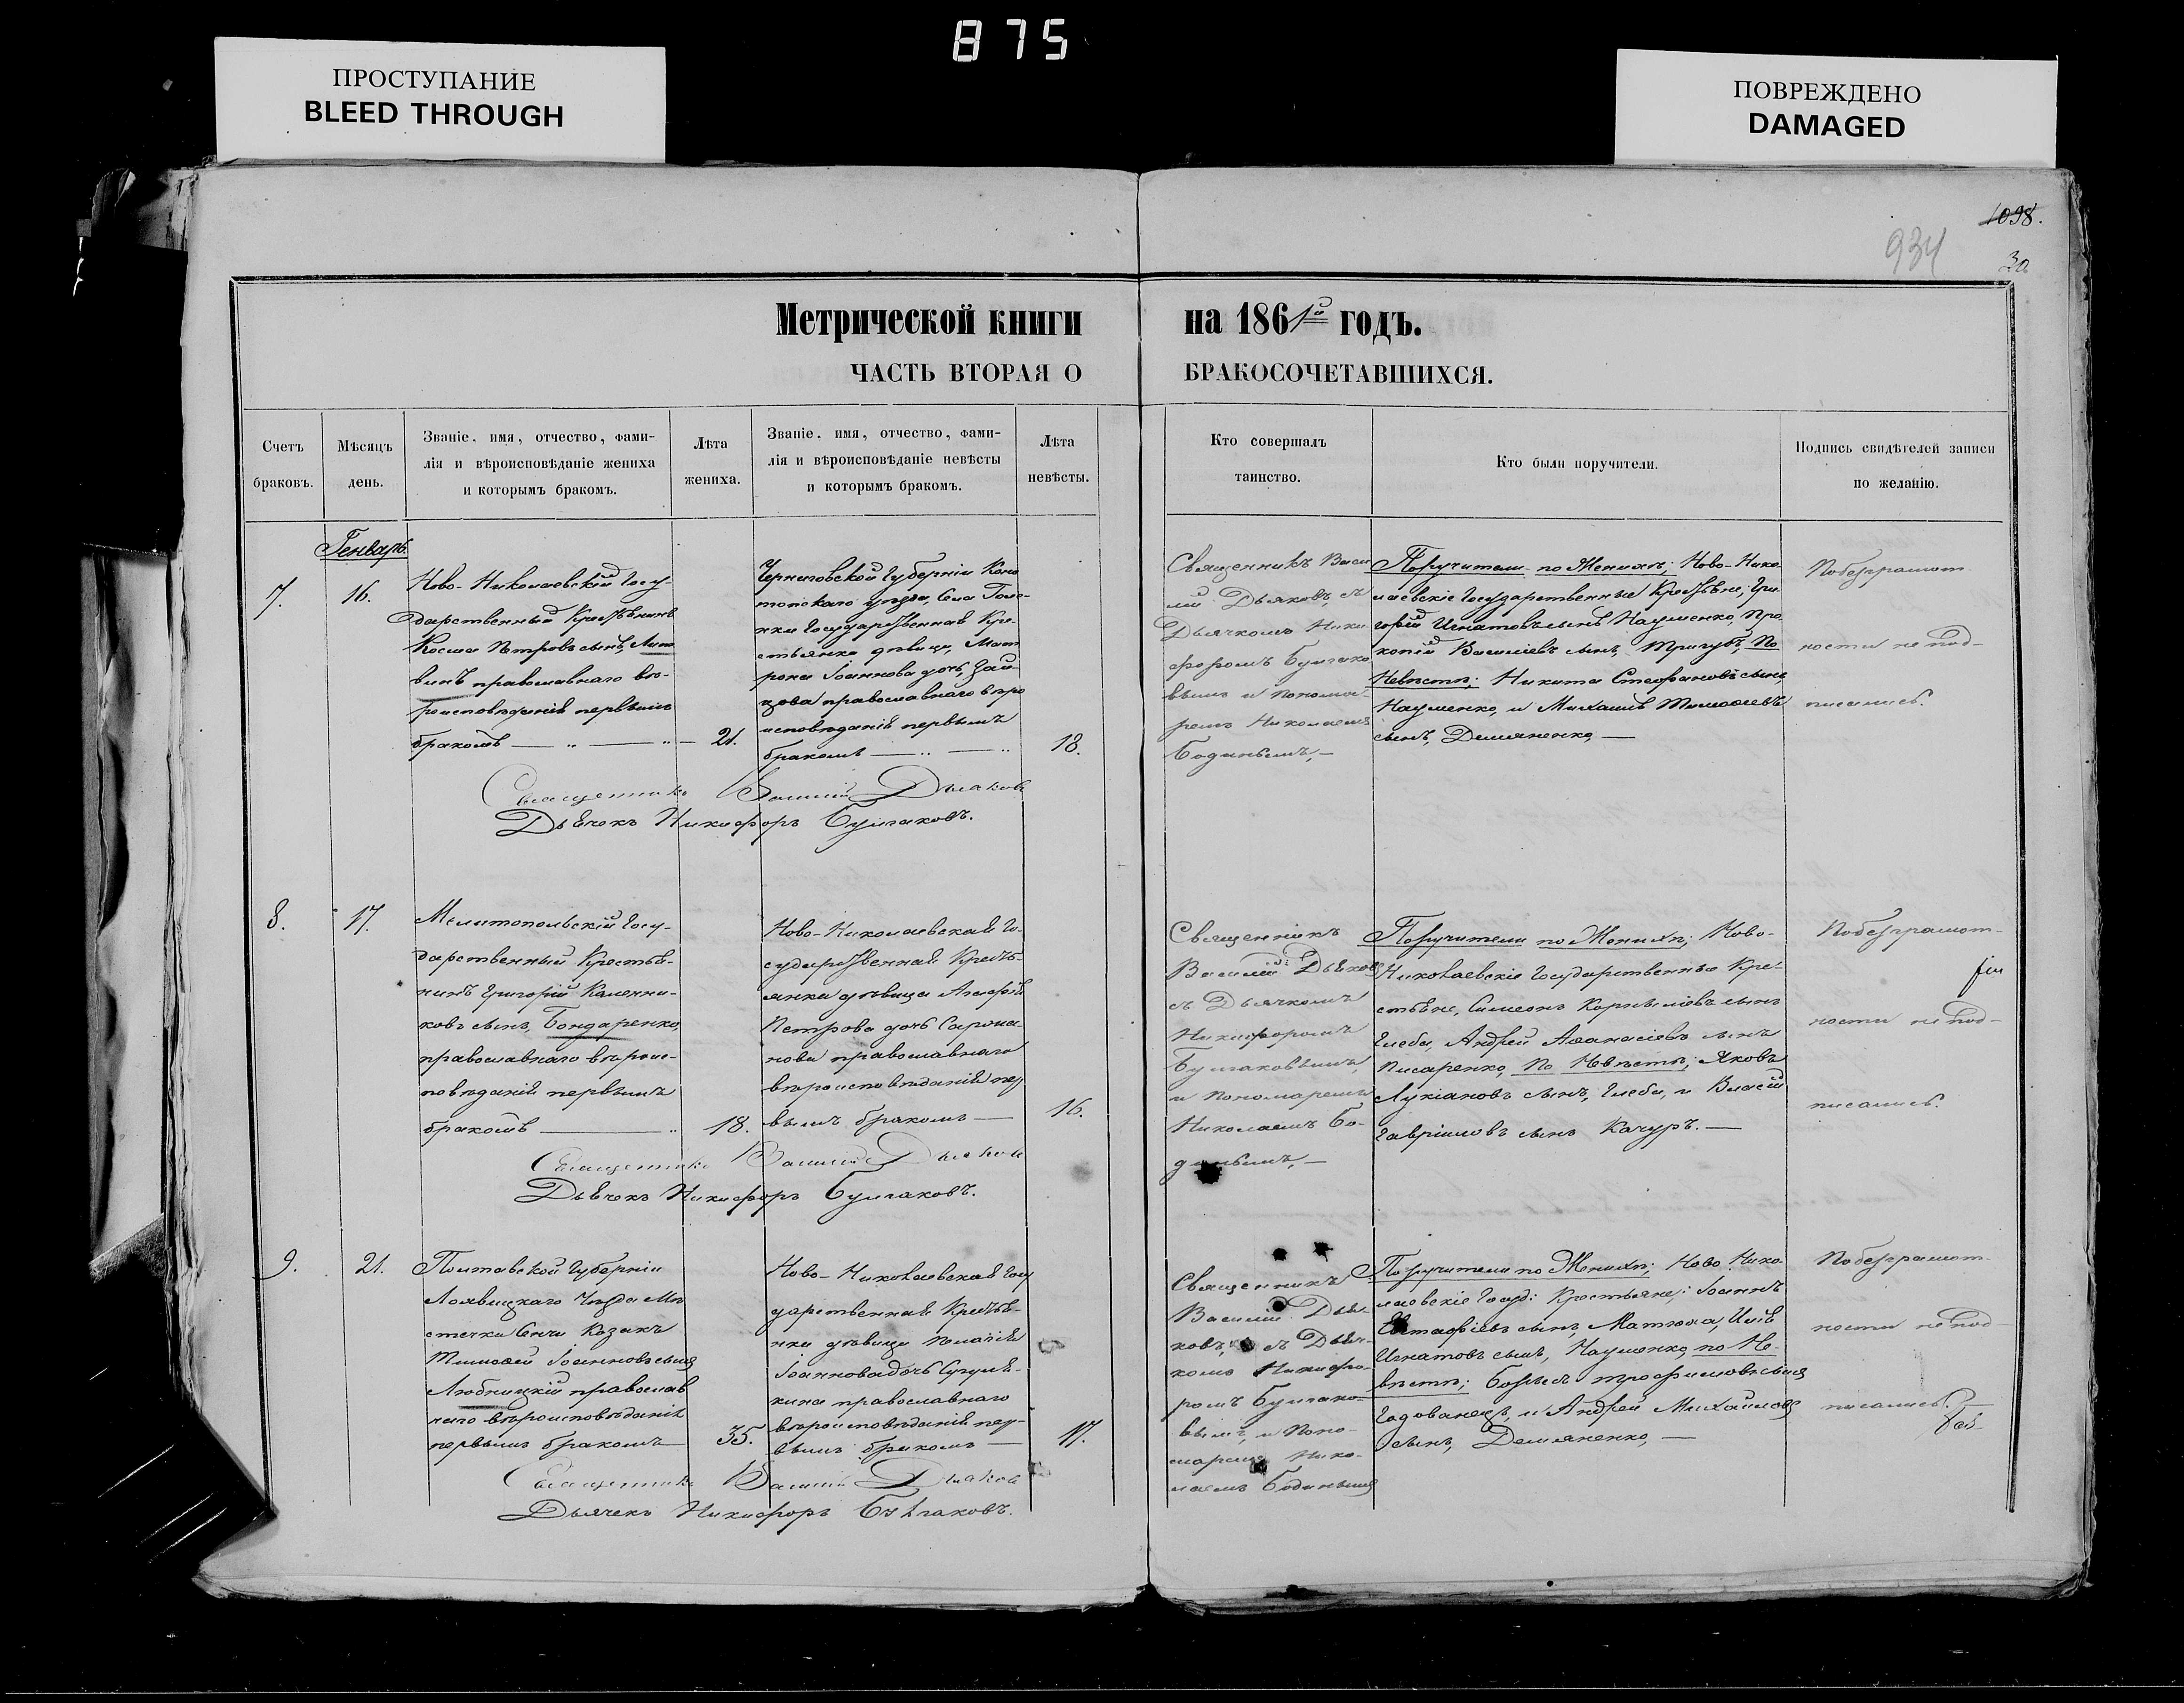 875
ПРОСТУПАНИЕ
BLEED THROUGH
ПОВРЕЖДЕНО
DAMAGED
1098.
934
30
Метрической книги на 1861го годъ.
ЧАСТЬ ВТОРАЯ О БРАКОСОЧЕТАВШИХСЯ.
Счетъ
браковъ.
Мѣсяцъ
день.
Званіе, имя, отчество, фами-
лія и вѣроисповѣданіе жениха
и которымъ бракомъ.
Лѣта
жениха.
Званіе, имя, отчество, фами-
лія и вѣроисповѣданіе невѣсты
и которымъ бракомъ.
Лѣта
невѣсты.
Кто совершалъ
таинство.
Кто были поручители.
Подпись свидѣтелей записи
по желанію.
Генварь
7.
16.
Ново-Николаевскій Госу-
дарственный Крестьянинъ
Косма Петровъ сынъ, Лит
винъ православнаго вѣ-
роисповѣданія первымъ
бракомъ
21.
Черниговской Губерніи Коно
топскаго уѣзда, Села Голе-
нки Государственная Кре-
стьянка дѣвица, Мат
рона Іоаннова дочь, Зай-
цова православнаго вѣро
исповѣданія первымъ
бракомъ
18.
Священникъ Васи
лій Дьяковъ, съ
Дьячкомъ Ники
форомъ Булгако
вымъ и пономо-
ремъ Николаемъ
Бодинымъ,
Поручители по Женихѣ; Ново-Нико
лаевскіе Государственные Крестьяне; Гри
горій Игнатовъ сынъ Науменко, Про
копій Васильевъ сынъ, Тригубъ, По
Невѣстѣ; Никита Стефановъ сынъ,
Науменко, и Михаилъ Тимоѳеевъ
сынъ, Демяненко,
Побезграмот-
ности не под-
писались.
Священникъ Василій Дьяковъ
Дьячекъ Никифоръ Булгаковъ.
8.
17.
Мелитопольскій Госу-
дарственный Крестья-
нинъ Григорій Калинни-
ковъ сынъ, Бондаренко,
православнаго вѣроис-
повѣданія первымъ
бракомъ
18.
Ново-Николаевская Го-
сударственная Крестъ-
янка дѣвица Агафія
Петрова дочь Сарона-
нова православнаго
вѣроисповѣданія пер
вымъ бракомъ
16.
Священникъ
Василій Дьяковъ
съ Дьячкомъ
Никифоромъ
Булгаковымъ
и Пономаремъ
Николаемъ Бо-
динымъ,
Поручители по Женихѣ; Ново-
Николаевскіе Государственные Кре-
стьяне, Симеонъ Корниліевъ сынъ
Глеба, Андрей Аѳанасіевъ сынъ
Писаренко, По Невѣстѣ; Яковъ
Лукіановъ сынъ, Глеба, и Власій
Гавріиловъ сынъ Качуръ.
Побезграмот-
ности не под-
писались.
Священникъ Василій Дьяковъ
Дьячекъ Никифоръ Булгаковъ.
9.
21.
Полтавской Губерніи
Лохвицкаго Уѣзда Мѣ
стечка Сенчи Козакъ
Тимоѳей Іоанновъ сынъ
Любицкій православ
наго вѣроисповѣданія
первымъ бракомъ
35.
Ново-Николаевская Госу
дарственная Крестья-
нка дѣвица Пелагія
Іоаннова дочь
православнаго
вѣроисповѣданія пер-
вымъ бракомъ
17.
Священникъ
Василій Дья-
ковъ, съ Дьяч-
комъ Никифо-
ромъ Булгако-
вымъ, и Поно-
маремъ Нико-
лаемъ Бодинымъ
Поручители по Женихѣ; Ново Нико-
лаевскіе Госуд: Крестьяне; Іоаннъ
Евстафіевъ сынъ, Матюха, Илія
Игнатовъ сынъ, Науменко, по Не-
вѣстѣ; Борисъ Трофимовъ сынъ
Годованецъ, и Андрей Михайловъ
сынъ, Демяненко,
Побезграмот-
ности не под-
писались.
Священникъ Василій Дьяковъ
Дьячекъ Никифоръ Булгаковъ.